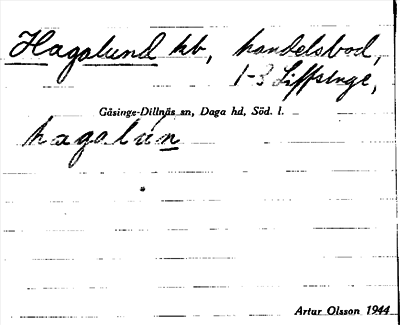 Hagalund hb, handelsbod,
1-3 Siffsinge,
Gåsinge-Dillnäs sn, Daga hd, Söd. l.
hagalún
Artur Olsson 1944